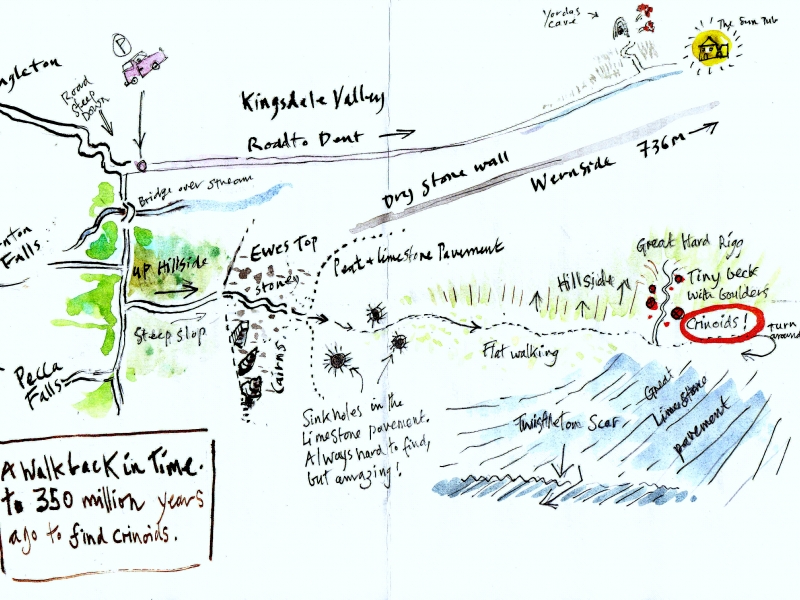 Yordas
cave
The Sun Tub
P
ngleton
Road
Steep
Down
Kingsdale Valley
Road to Dent
Bridge over stream
Dry stone wall
Wernside 736m
nton
Falls
up Hillside
Steep Slop
Ewes Top
stones
Cairns
Peat + Limestone Pavement
Hillside
Great Hard Rigg
Tiny beck
with Boulders
Crinoids!
turn
around
Flat walking
Pecca
Falls
Sinkholes in the
Limestone pavement.
Always hard to find,
but amazing!
Twistleton Scar
Great
Limestone
pavement
A Walk back in Time.
to 350 million years
ago to find crinoids.